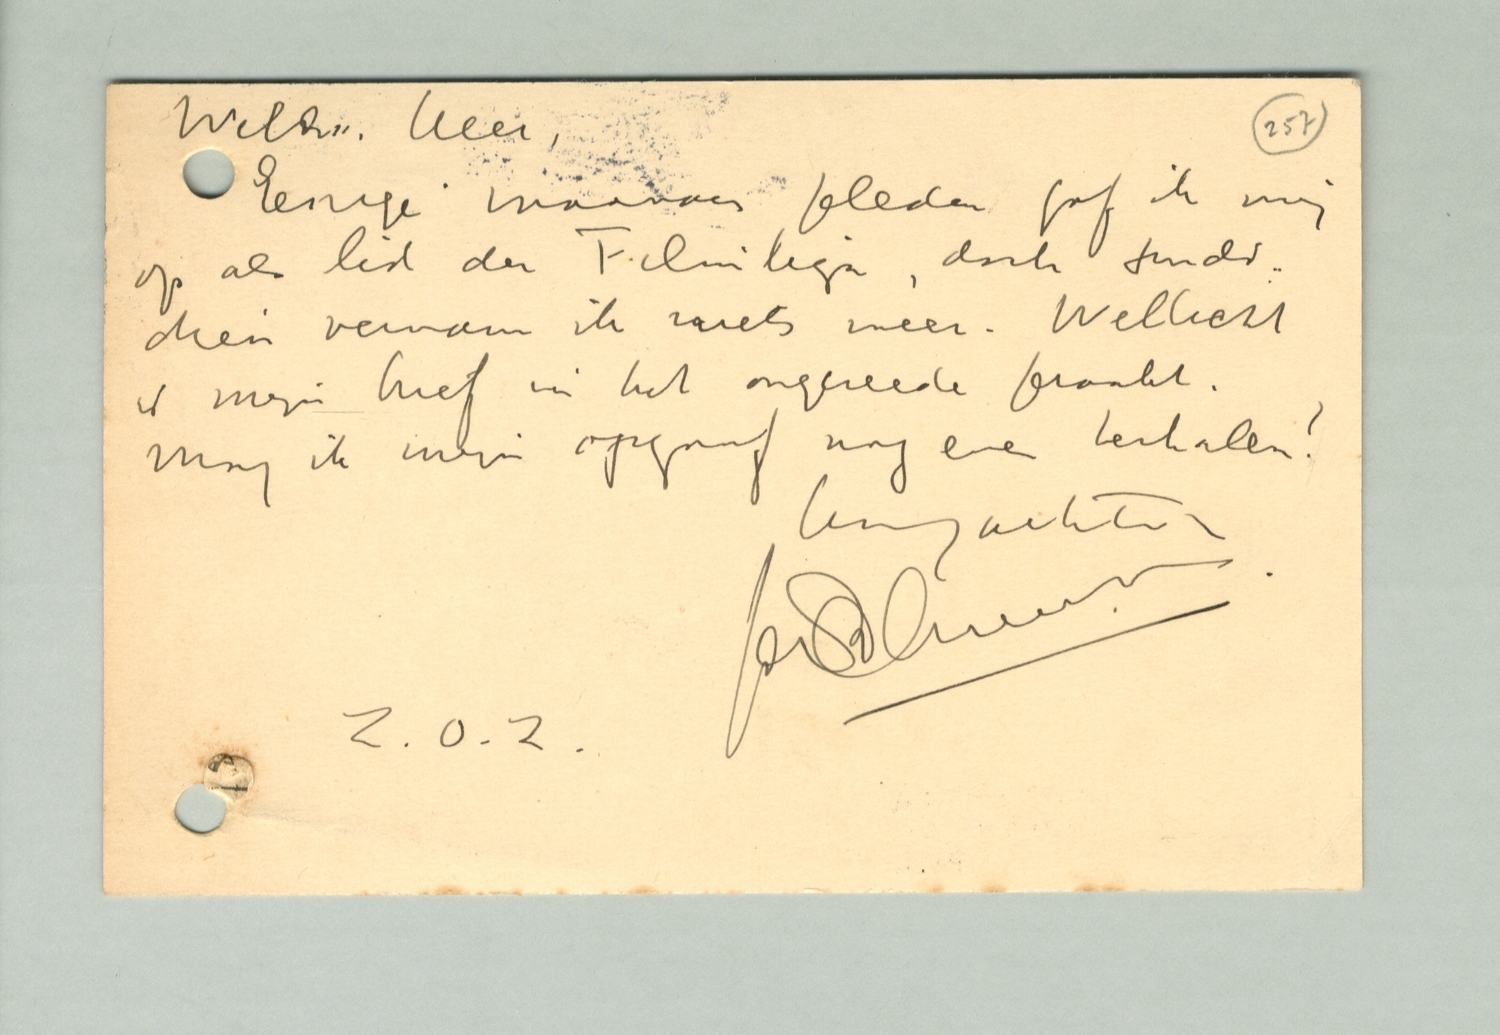 257
WelEdele Heer,
Eenige maanden geleden gaf ik mij
op als lid der Filmliga, doch sinds-
dien vernam ik niets meer. Wellicht
is mijn brief in het ongereede geraakt.
Mag ik mijn opgaaf nog eens herhalen?
Hoogachtend
Z.O.Z.